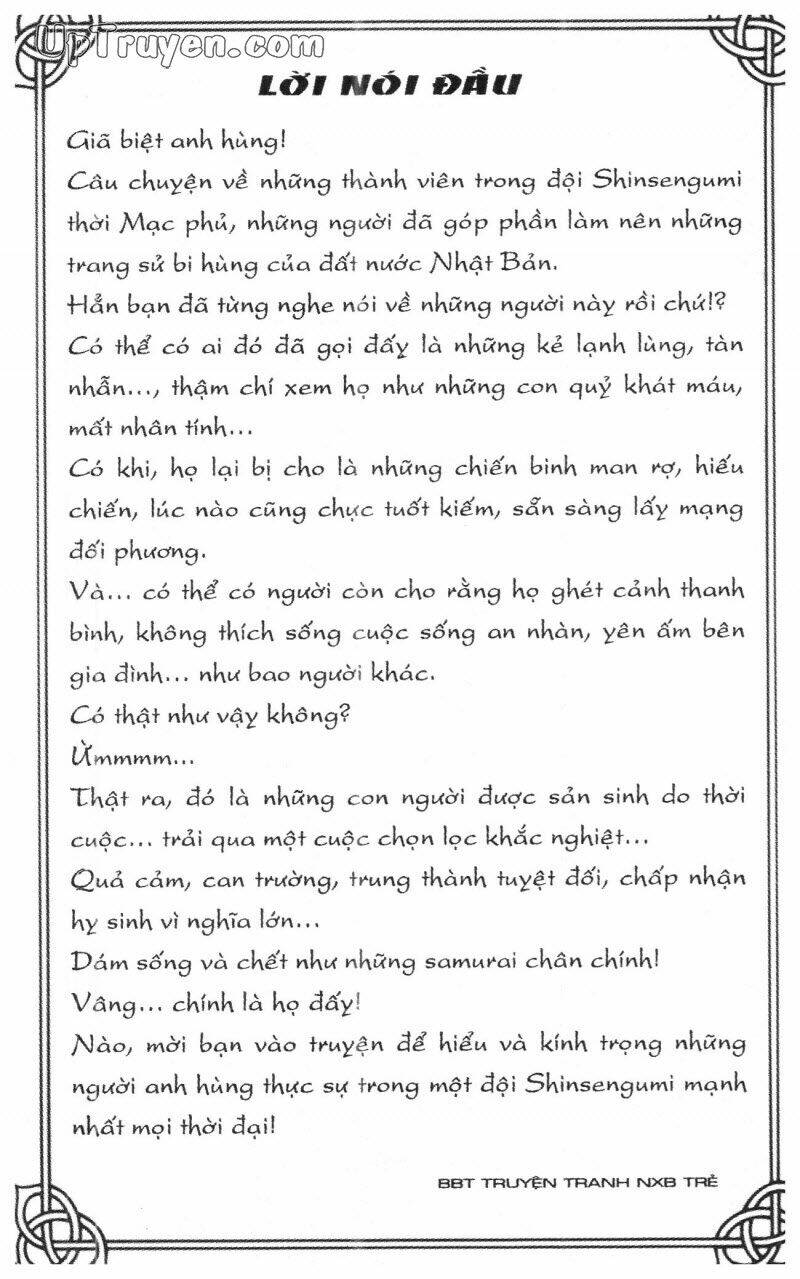 UpTruyen.com
LỜI NÓI ĐẦU
Giã biệt anh hùng!
Câu chuyện về những thành viên trong đội Shinsengumi
thời Mạc phủ, những người đã góp phần làm nên những
trang sử bi hùng của đất nước Nhật Bản.
Hẳn bạn đã từng nghe nói về những người này rồi chứ!?
Có thể có ai đó đã gọi đấy là những kẻ lạnh lùng, tàn
nhẫn..., thậm chí xem họ như những con quỷ khát máu,
mất nhân tính...
Có khi, họ lại bị cho là những chiến binh man rợ, hiếu
chiến, lúc nào cũng chực tuốt kiếm, sẵn sàng lấy mạng
đối phương.
Và... có thể có người còn cho rằng họ ghét cảnh thanh
bình, không thích sống cuộc sống an nhàn, yên ấm bên
gia đình... như bao người khác.
Có thật như vậy không?
Ừmmmm...
Thật ra, đó là những con người được sản sinh do thời
cuộc... trải qua một cuộc chọn lọc khắc nghiệt...
Quả cảm, can trường, trung thành tuyệt đối, chấp nhận
hy sinh vì nghĩa lớn...
Dám sống và chết như những samurai chân chính!
Vâng... chính là họ đấy!
Nào, mời bạn vào truyện để hiểu và kính trọng những
người anh hùng thực sự trong một đội Shinsengumi mạnh
nhất mọi thời đại!
BBT TRUYỆN TRANH NXB TRẺ